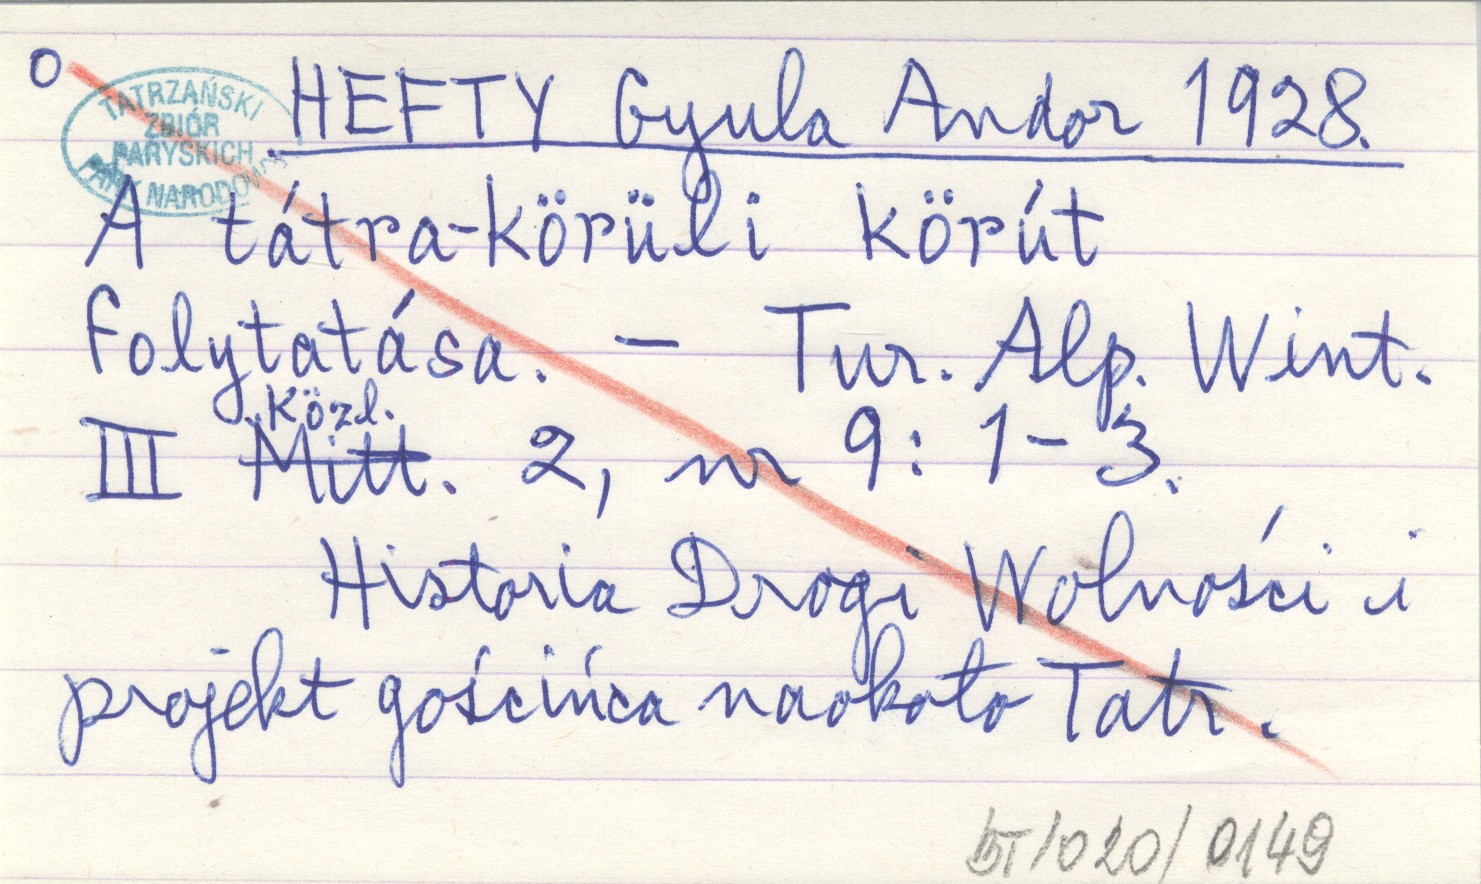 O
TATRZAŃSKI
ZBIÓR
PARYSKICH
PARK NARODOWY
HEFTY Gyula Andor 1928.
A tátra-körüli körút
folytatása. – Tur. Alp. Wint.
Közl.
III Mitt. 2, nr 9: 1-3.
Historia Drogi Wolności i
projekt gościńca naokoło Tatr.
BT/020/0149